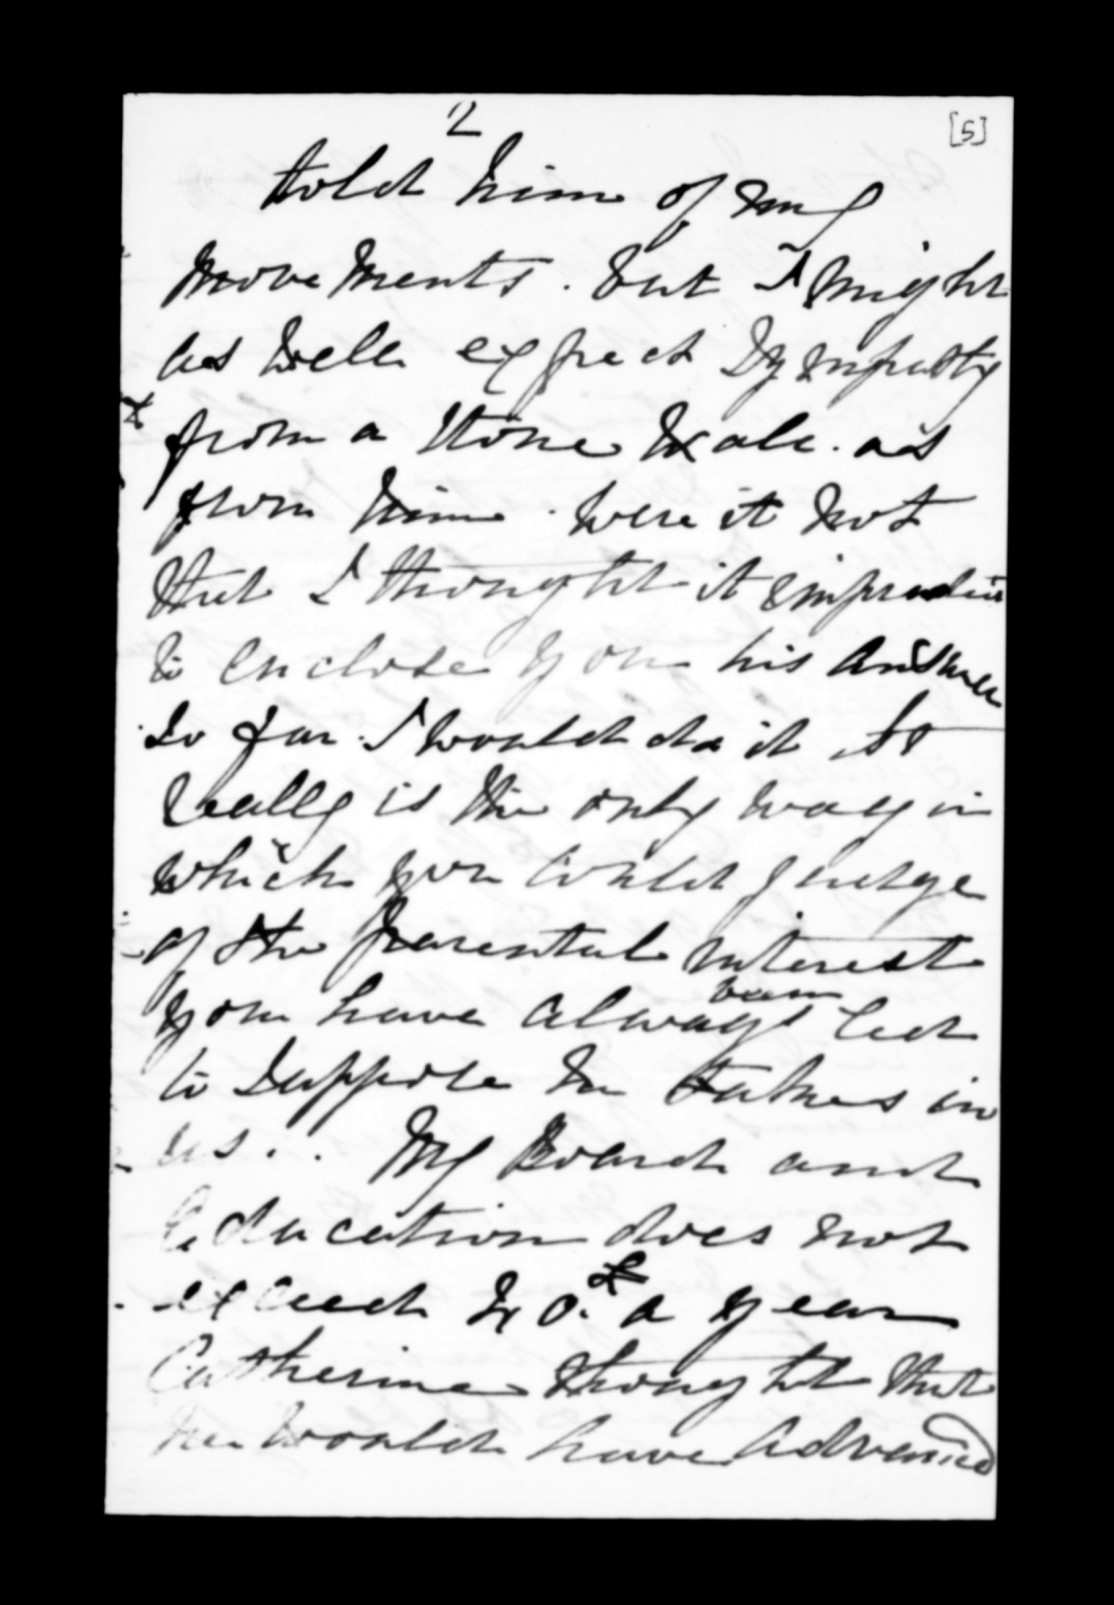 2
[5]
told him of my
movements. but I might
as well expect sympathy
from a stone wall. as
from him. were it not
that I thought it imprudent
to enclose you his answer
so far. I would do it It
really is the only way in
which you could judge
of the parental interest
been
you have always led
to suppose he takes in
us.. My Board and
Education does not
exceed 40.£ a year
Catherine thought that
he would have advanced